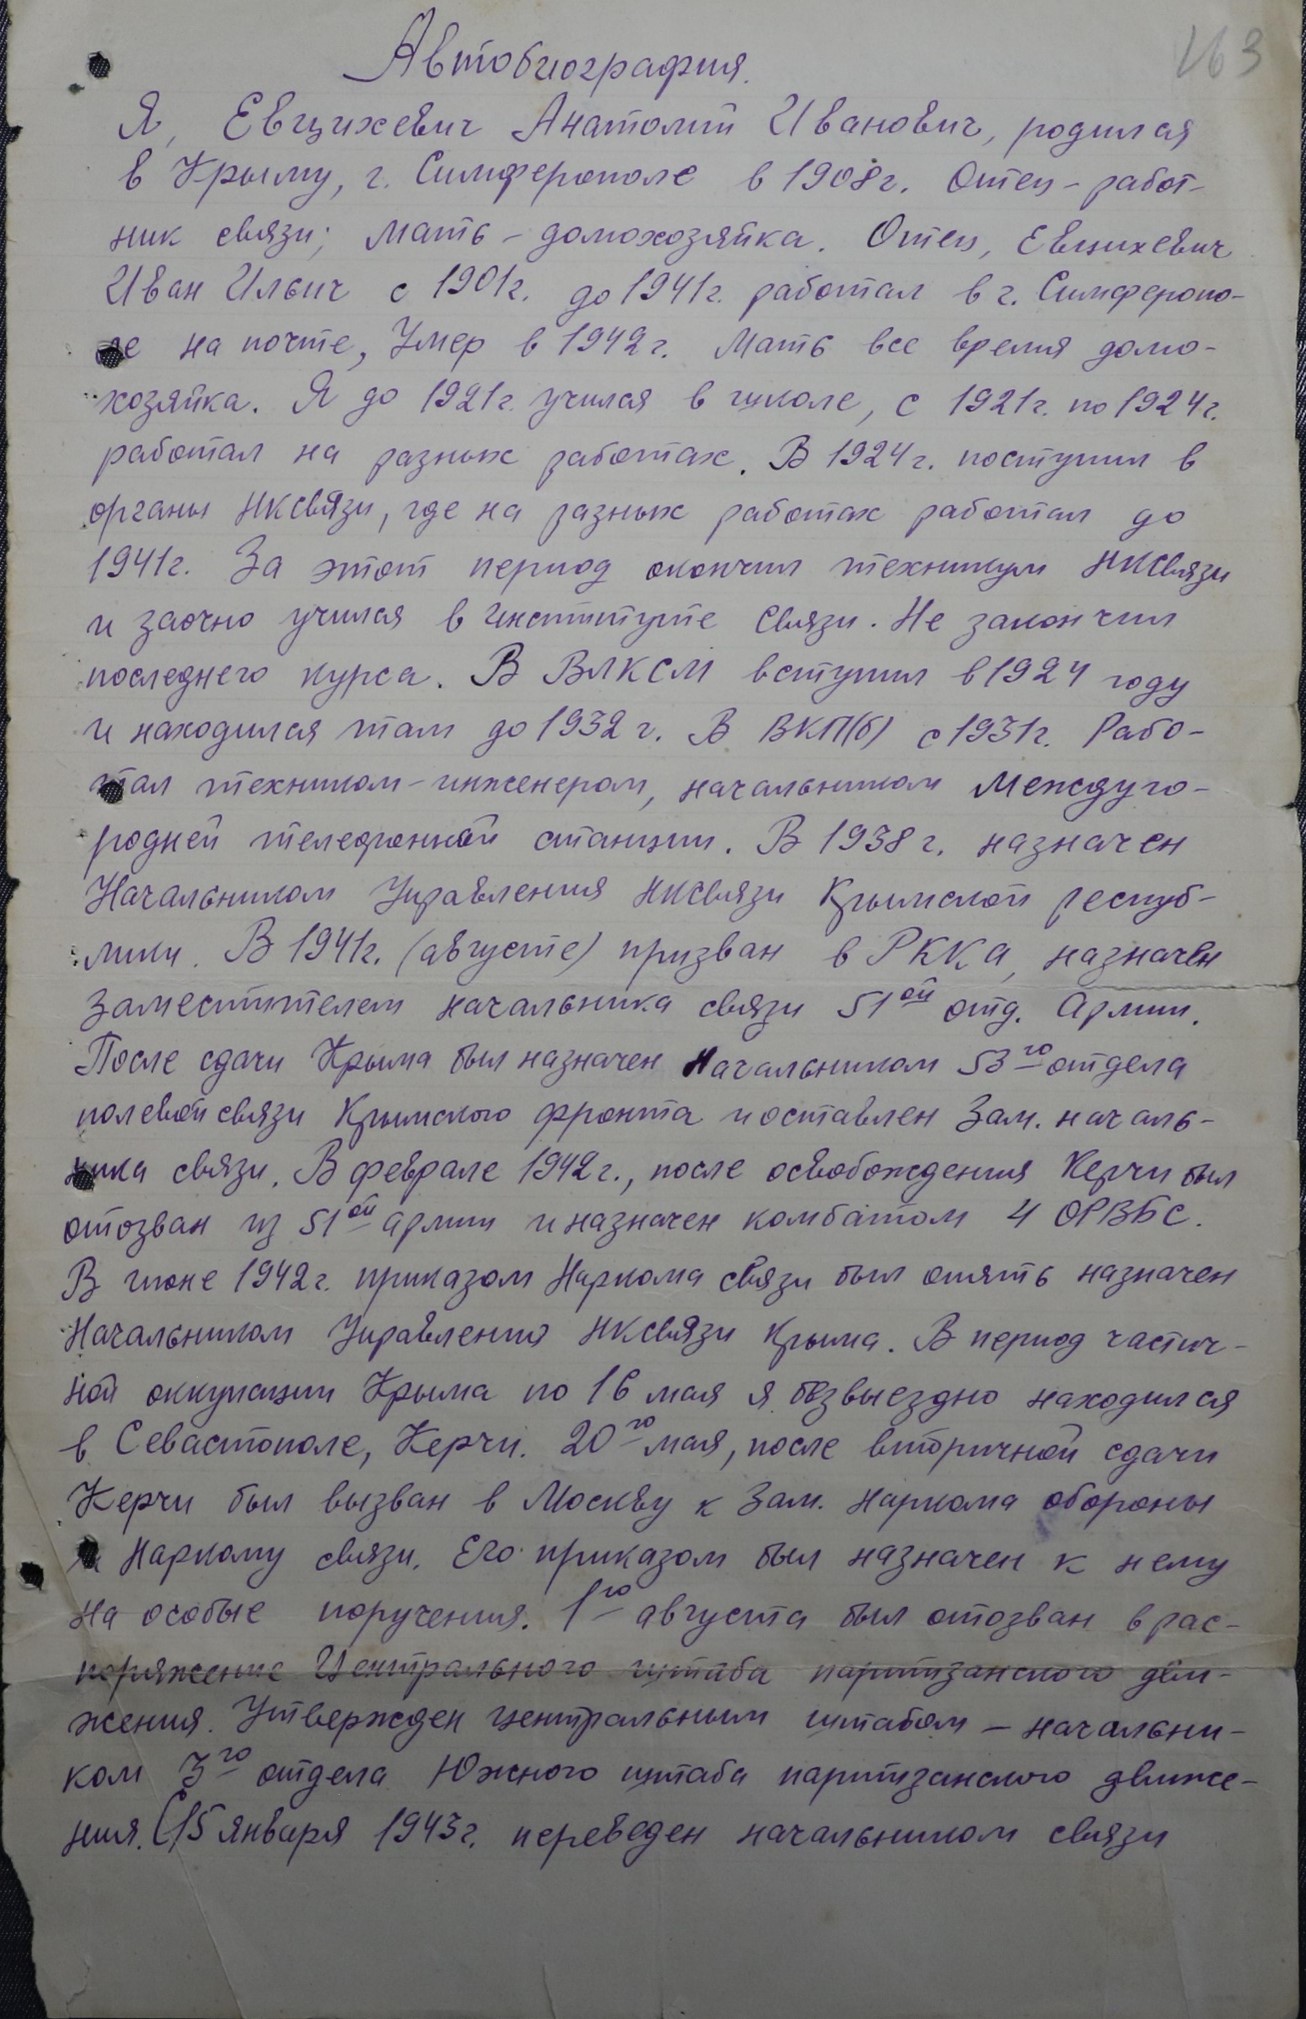 163
Автобиография.
Я, Евцихевич Анатолий Иванович, родился
в Крыму, г. Симферополе в 1908г. Отец - работ-
ник связи; мать - домохозяйка. Отец, Евцихевич
Иван Ильич с 1901г. до 1941г. работал в г. Симферопо-
ле на почте, Умер в 1942г. Мать все время домо-
хозяйка. Я до 1921г. учился в школе, с 1921г. по 1924г.
работал на разных работах. В 1924г. поступил в
органы НКСвязи, где на разных работах работал до
1941г. За этот период окончил техникум НКСвязи
и заочно учился в Институте Связи. Не закончил
последнего курса. В ВЛКСМ вступил в 1924 году
и находился там до 1932г. В ВКП(б) с 1931г. Рабо-
тал техником-инженером, начальником Междуго-
родней телефонной станции. В 1938г. назначен
Начальником Управления НКСвязи Крымской респуб-
лики. В 1941г. (августе) призван в РККА, назначен
Заместителем начальника связи 51ой отд. Армии.
После сдачи Крыма был назначен Начальником 53го отдела
полевой связи Крымского фронта и оставлен Зам. началь-
ника связи. В феврале 1942г., после освобождения Керчи был
отозван из 51ой армии и назначен комбатом 4 ОРВБС.
В июне 1942г. приказом Наркома связи был опять назначен
Начальником Управления НКСвязи Крыма. В период частич-
ной оккупации Крыма по 16 мая я безвыездно находился
в Севастополе, Керчи. 20го мая, после вторичной сдачи
Керчи был вызван в Москву к Зам. Наркома обороны
и Наркому связи. Его приказом был назначен к нему
на особые поручения. 1го августа был отозван в рас-
поряжение Центрального штаба партизанского дви-
жения. Утвержден центральным штабом - начальни-
ком 3го отдела Южного штаба партизанского движе-
ния. (15 января 1943г. переведен начальником связи